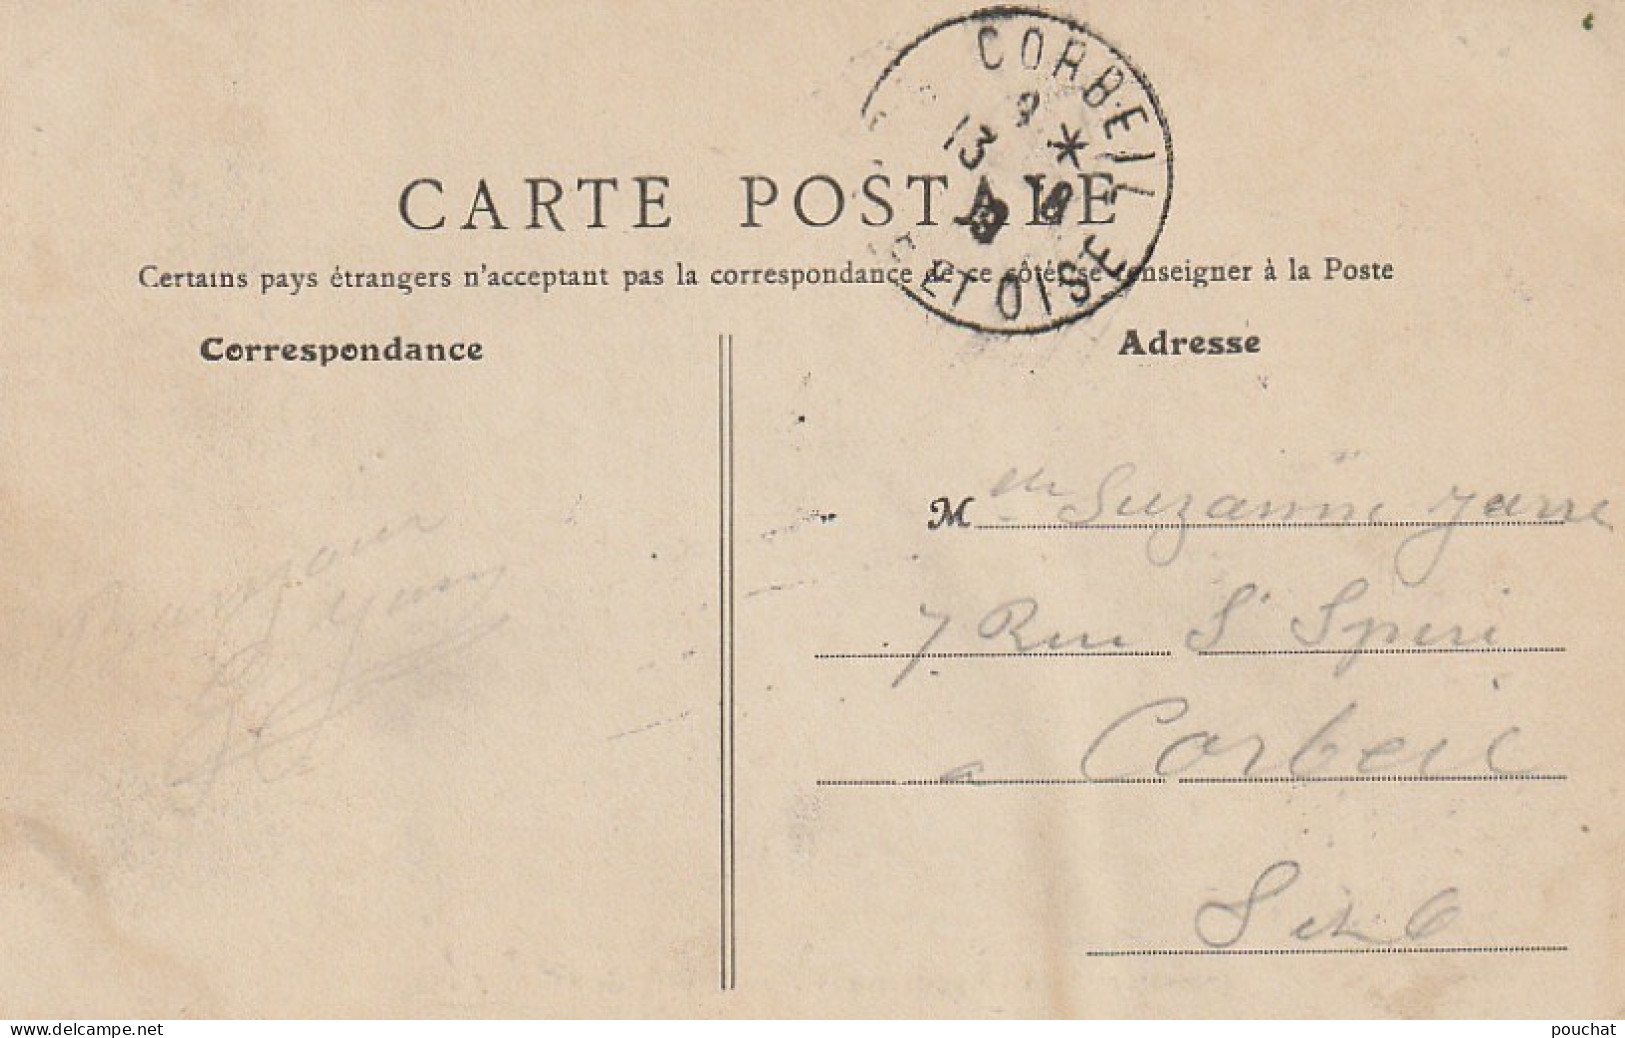 CORBEIL
9 *
13
ET OISE
CARTE POSTALE
Certains pays étrangers n'acceptant pas la correspondance de ce côté, se renseigner à la Poste
Correspondance
Adresse
Mlle Suzanne Jarre
7 Rue St Speri
a Corbeil
S et O
Bonjour
www.delcampe.net
pouchat